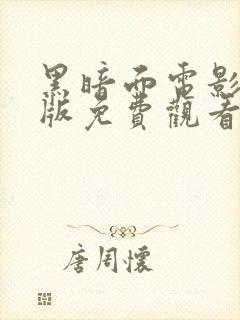 黑暗面電影
版免費觀看
唐周懷